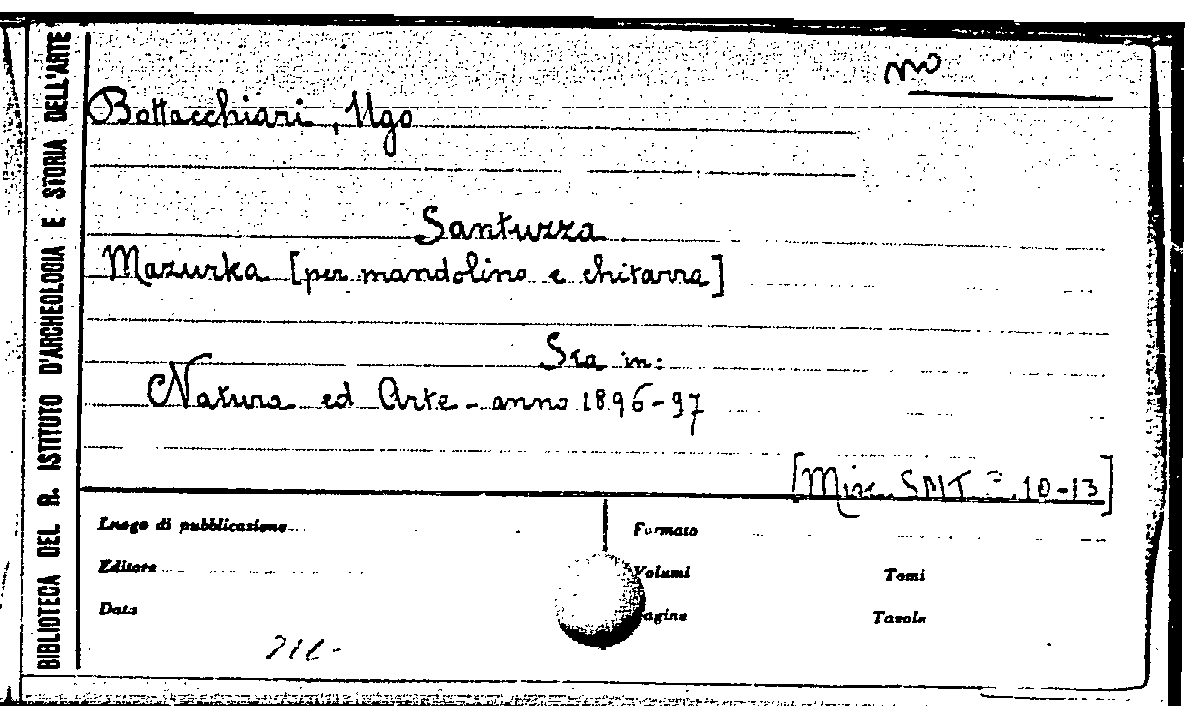 BIBLIOTECA DEL R. ISTITUTO D'ARCHEOLOGIA E STORIA DELL'ARTE
mo
Bottacchiari, Ugo
Santuzza
Mazurka [per mandolino e chitarra]
Sta in:
Natura ed Arte - anno 1896-97
[Misc. SMT = 10-13]
Luogo di pubblicazione
Formato
Editore
Volumi
Tomi
Data
agine
Tavole